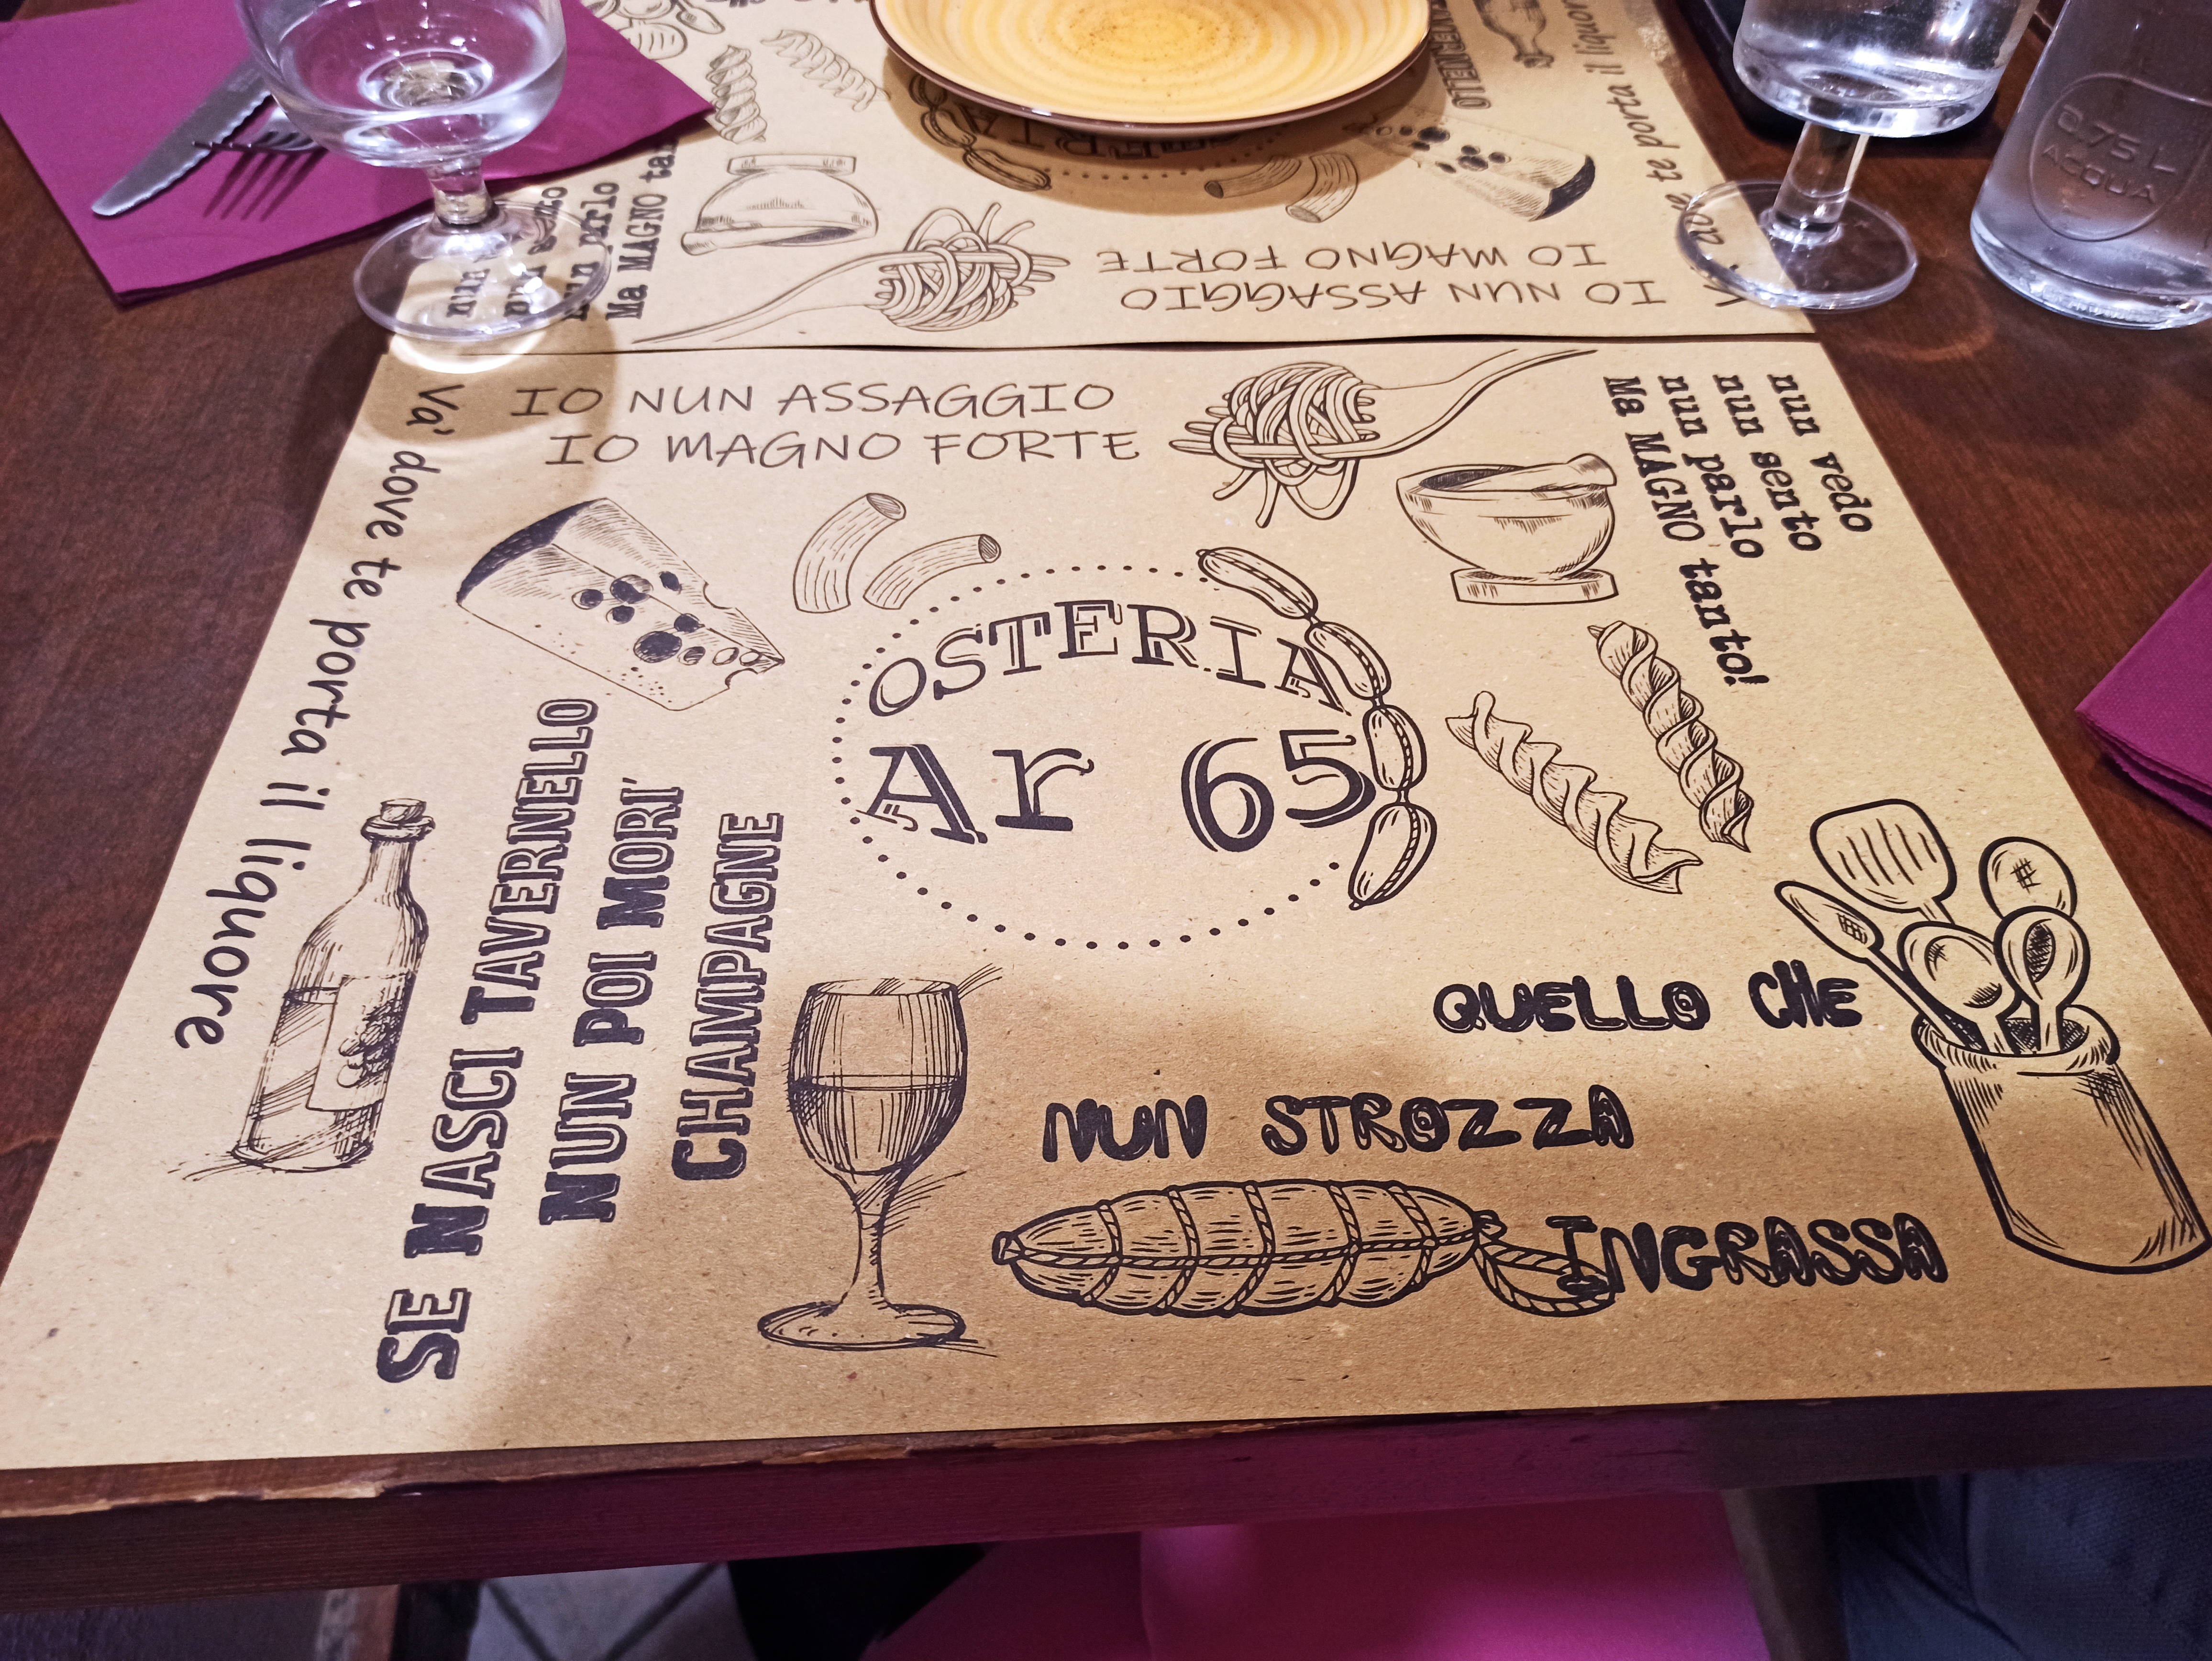 nun parlo
Ma MAGNO
IO NUN ASSAGGIO
IO MAGNO FORTE
te porta il liquore
0.75 L
ACQUA
IO NUN ASSAGGIO
IO MAGNO FORTE
nun vedo
nun sento
nun parlo
Ma MAGNO tanto!
Va' dove te porta il liquore
OSTERIA
Ar 65
SE NASCI TAVERNELLO
NUN POI MORI'
CHAMPAGNE
QUELLO CHE
NUN STROZZA
INGRASSA